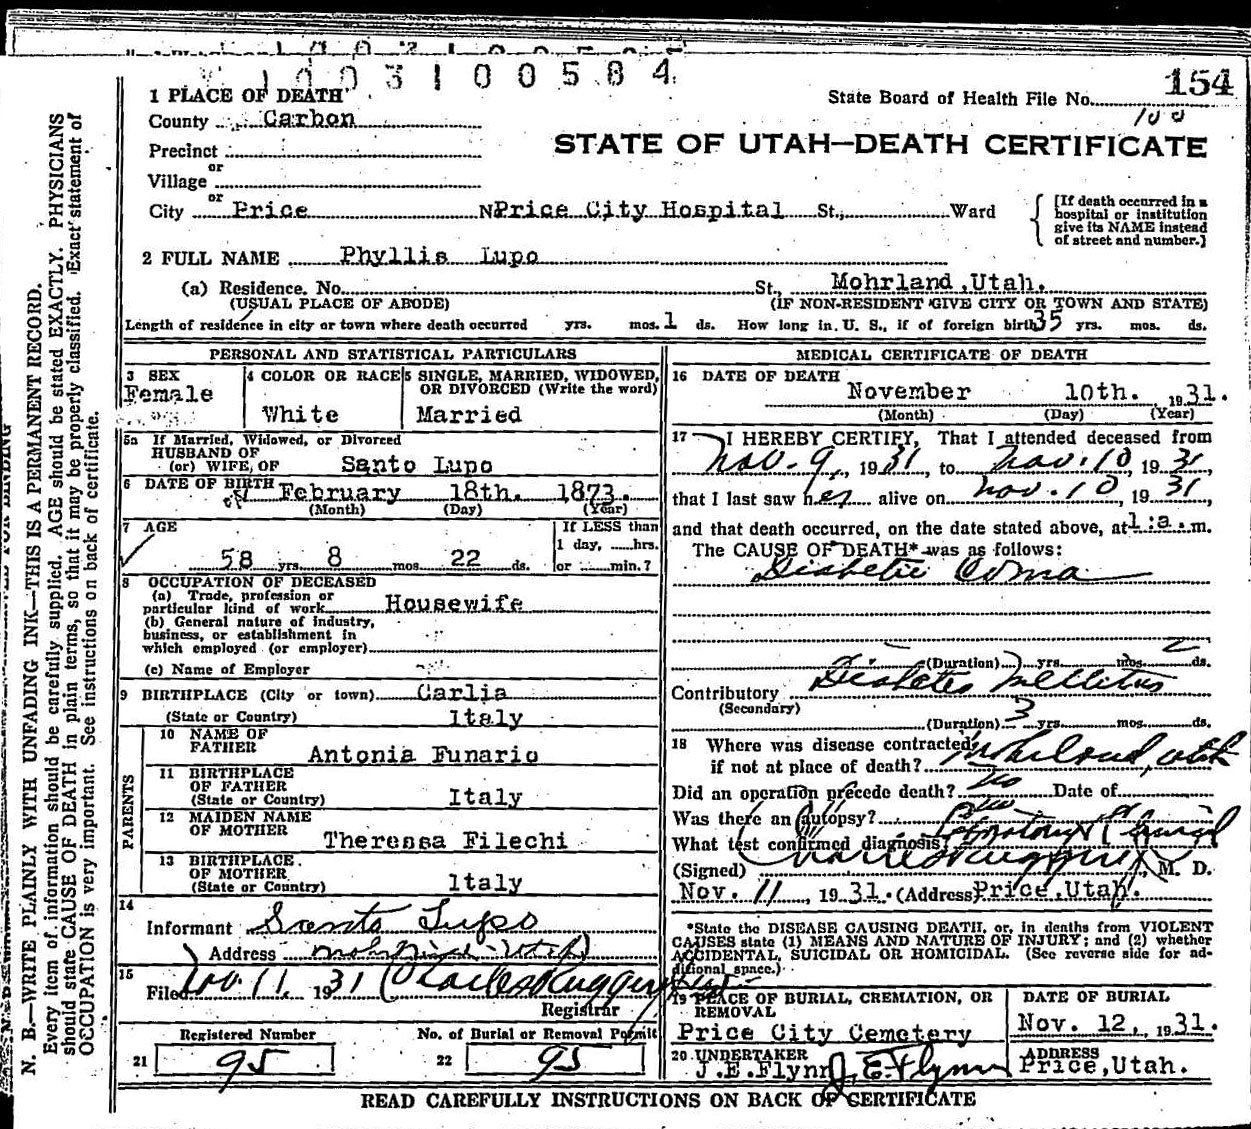 1003100584
154
1 PLACE OF DEATH
State Board of Health File No.
100
County Carbon
STATE OF UTAH—DEATH CERTIFICATE
Precinct
or
Village
or
City Price N Price City Hospital St., Ward
[If death occurred in a hospital or institution give its NAME instead of street and number.]
2 FULL NAME Phyllis Lupo
(a) Residence. No. St., Mohrland, Utah.
(USUAL PLACE OF ABODE) (IF NON-RESIDENT GIVE CITY OR TOWN AND STATE)
Length of residence in city or town where death occurred yrs. mos. 1 ds. How long in U. S., if of foreign birth 35 yrs. mos. ds.
PERSONAL AND STATISTICAL PARTICULARS
3 SEX
Female
4 COLOR OR RACE
White
5 SINGLE, MARRIED, WIDOWED, OR DIVORCED (Write the word)
Married
5a If Married, Widowed, or Divorced
HUSBAND OF
(or) WIFE OF Santo Lupo
6 DATE OF BIRTH February 18th. 1873.
(Month) (Day) (Year)
7 AGE
58 yrs. 8 mos. 22 ds.
If LESS than
1 day, ......hrs.
or ......min.?
8 OCCUPATION OF DECEASED
(a) Trade, profession or
particular kind of work Housewife
(b) General nature of industry,
business, or establishment in
which employed (or employer)
(c) Name of Employer
9 BIRTHPLACE (City or town) Carlia
(State or Country) Italy
PARENTS
10 NAME OF
FATHER Antonia Funario
11 BIRTHPLACE
OF FATHER
(State or Country) Italy
12 MAIDEN NAME
OF MOTHER Theressa Filechi
13 BIRTHPLACE
OF MOTHER
(State or Country) Italy
14
Informant Santo Lupo
Address Utah
15
Filed Nov. 11, 1931 Charles Ruggeri
Registrar
Registered Number
21 95
No. of Burial or Removal Permit
22 95
MEDICAL CERTIFICATE OF DEATH
16 DATE OF DEATH
November 10th. , 1931.
(Month) (Day) (Year)
17 I HEREBY CERTIFY, That I attended deceased from
Nov. 9, 1931, to Nov. 10, 1931,
that I last saw her alive on Nov. 10, 1931,
and that death occurred, on the date stated above, at 1:a.m.
The CAUSE OF DEATH* was as follows:
Diabetic Coma
(Duration) yrs. mos. 2 ds.
Contributory Diabetes Mellitus
(Secondary)
(Duration) 3 yrs. mos. ds.
18 Where was disease contracted
if not at place of death? Mohrland, Utah
Did an operation precede death? No Date of
Was there an autopsy? No
What test confirmed diagnosis? Laboratory & Clinical
(Signed) Charles Ruggeri, M. D.
Nov. 11, 1931. (Address) Price, Utah.
*State the DISEASE CAUSING DEATH, or, in deaths from VIOLENT
CAUSES state (1) MEANS AND NATURE OF INJURY; and (2) whether
ACCIDENTAL, SUICIDAL OR HOMICIDAL. (See reverse side for ad-
ditional space.)
19 PLACE OF BURIAL, CREMATION, OR
REMOVAL
Price City Cemetery
DATE OF BURIAL
Nov. 12, , 1931.
20 UNDERTAKER
J.E.Flynn J. E. Flynn
ADDRESS
Price, Utah.
READ CAREFULLY INSTRUCTIONS ON BACK OF CERTIFICATE
N. B.—WRITE PLAINLY WITH UNFADING INK—THIS IS A PERMANENT RECORD.
Every item of information should be carefully supplied. AGE should be stated EXACTLY. PHYSICIANS
should state CAUSE OF DEATH in plain terms, so that it may be properly classified. Exact statement of
OCCUPATION is very important. See instructions on back of certificate.